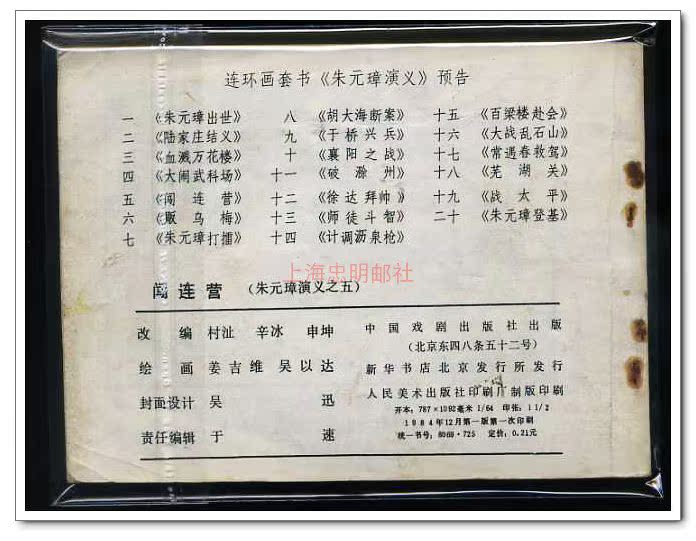 连环画套书《朱元璋演义》预告
一 《朱元璋出世》 八 《胡大海断案》 十五 《百梁楼赴会》
二 《陆家庄结义》 九 《于桥兴兵》 十六 《大战乱石山》
三 《血溅万花楼》 十 《襄阳之战》 十七 《常遇春救驾》
四 《大闹武科场》 十一 《破滁州》 十八 《芜湖关》
五 《闯连营》 十二 《徐达拜帅》 十九 《战太平》
六 《贩乌梅》 十三 《师徒斗智》 二十 《朱元璋登基》
七 《朱元璋打擂》 十四 《计调沥泉枪》
上海忠明邮社
闯连营 (朱元璋演义之五)
改编 村沚 辛冰 申坤
绘画 姜吉维 吴以达
封面设计 吴迅
责任编辑 于速
中国戏剧出版社出版
(北京东四八条五十二号)
新华书店北京发行所发行
人民美术出版社印刷厂制版印刷
开本:787×1092毫米 1/64 印张:1 1/2
1984年12月第一版第一次印刷
统一书号:8069·725 定价:0.21元